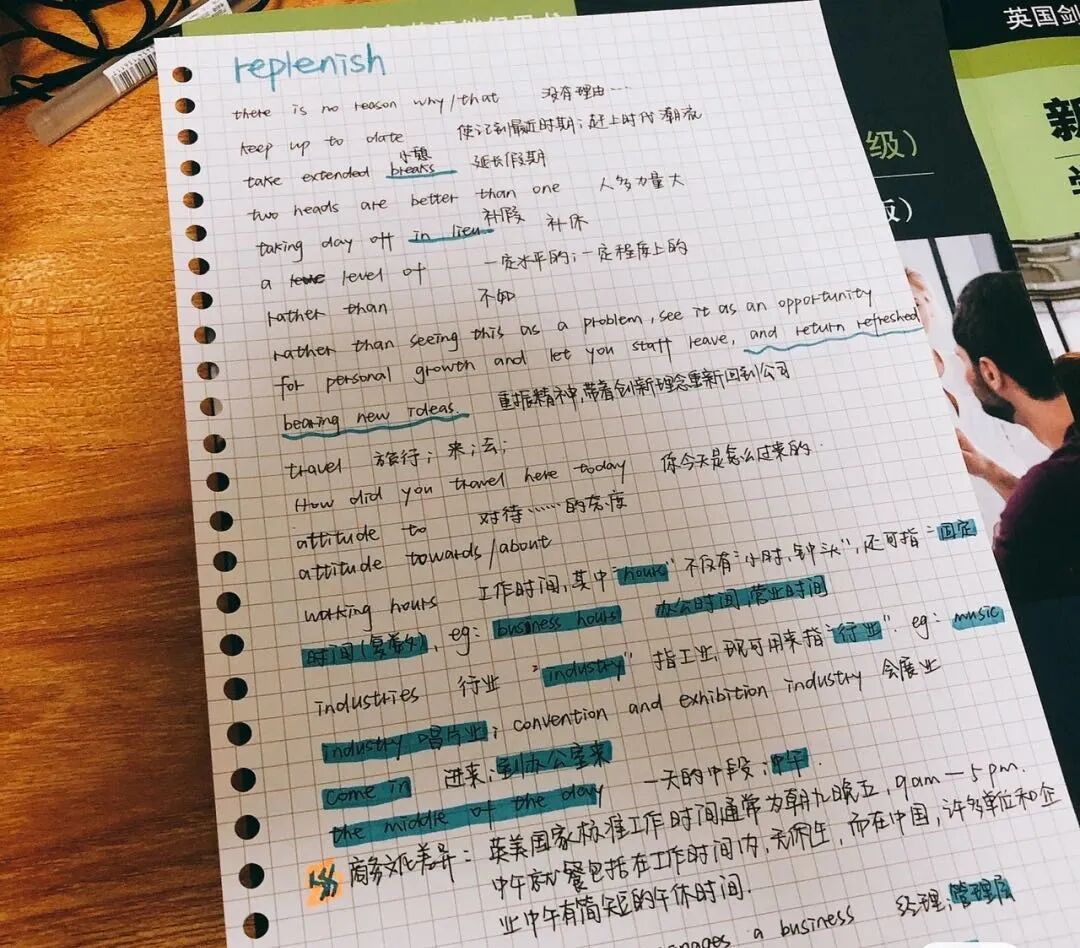 英国剑
新
级）
版）
replenish
there is no reason why/that 没有理由…
keep up to date 使记到最近时期；赶上时代潮流
小憩
take extended breaks 延长假期
two heads are better than one 人多力量大
补假
taking day off in lieu 补休
a level of 一定水平的；一定程度上的
rather than 不如
rather than seeing this as a problem, see it as an opportunity
for personal growth and let you staff leave, and return refreshed
bearing new ideas. 重振精神，带着创新理念重新回到公司
travel 旅行；来；去；
How did you travel here today 你今天是怎么过来的.
attitude to 对待……的态度
attitude towards/about
working hours 工作时间，其中"hours"不仅有"小时，钟头"，还可指"固定
时间(复数)，eg: business hours 办公时间，营业时间
industries 行业 "industry" 指工业，现可用来指"行业". eg: music
industry 唱片业；convention and exhibition industry 会展业
come in 进来；到办公室来
the middle of the day 一天的中段；中午.
商务文化差异：英美国家标准工作时间通常为朝九晚五，9am—5pm.
中午就餐包括在工作时间内，无午休，而在中国，许多单位和企
业中午有简短的午休时间.
a business 经理；管理层